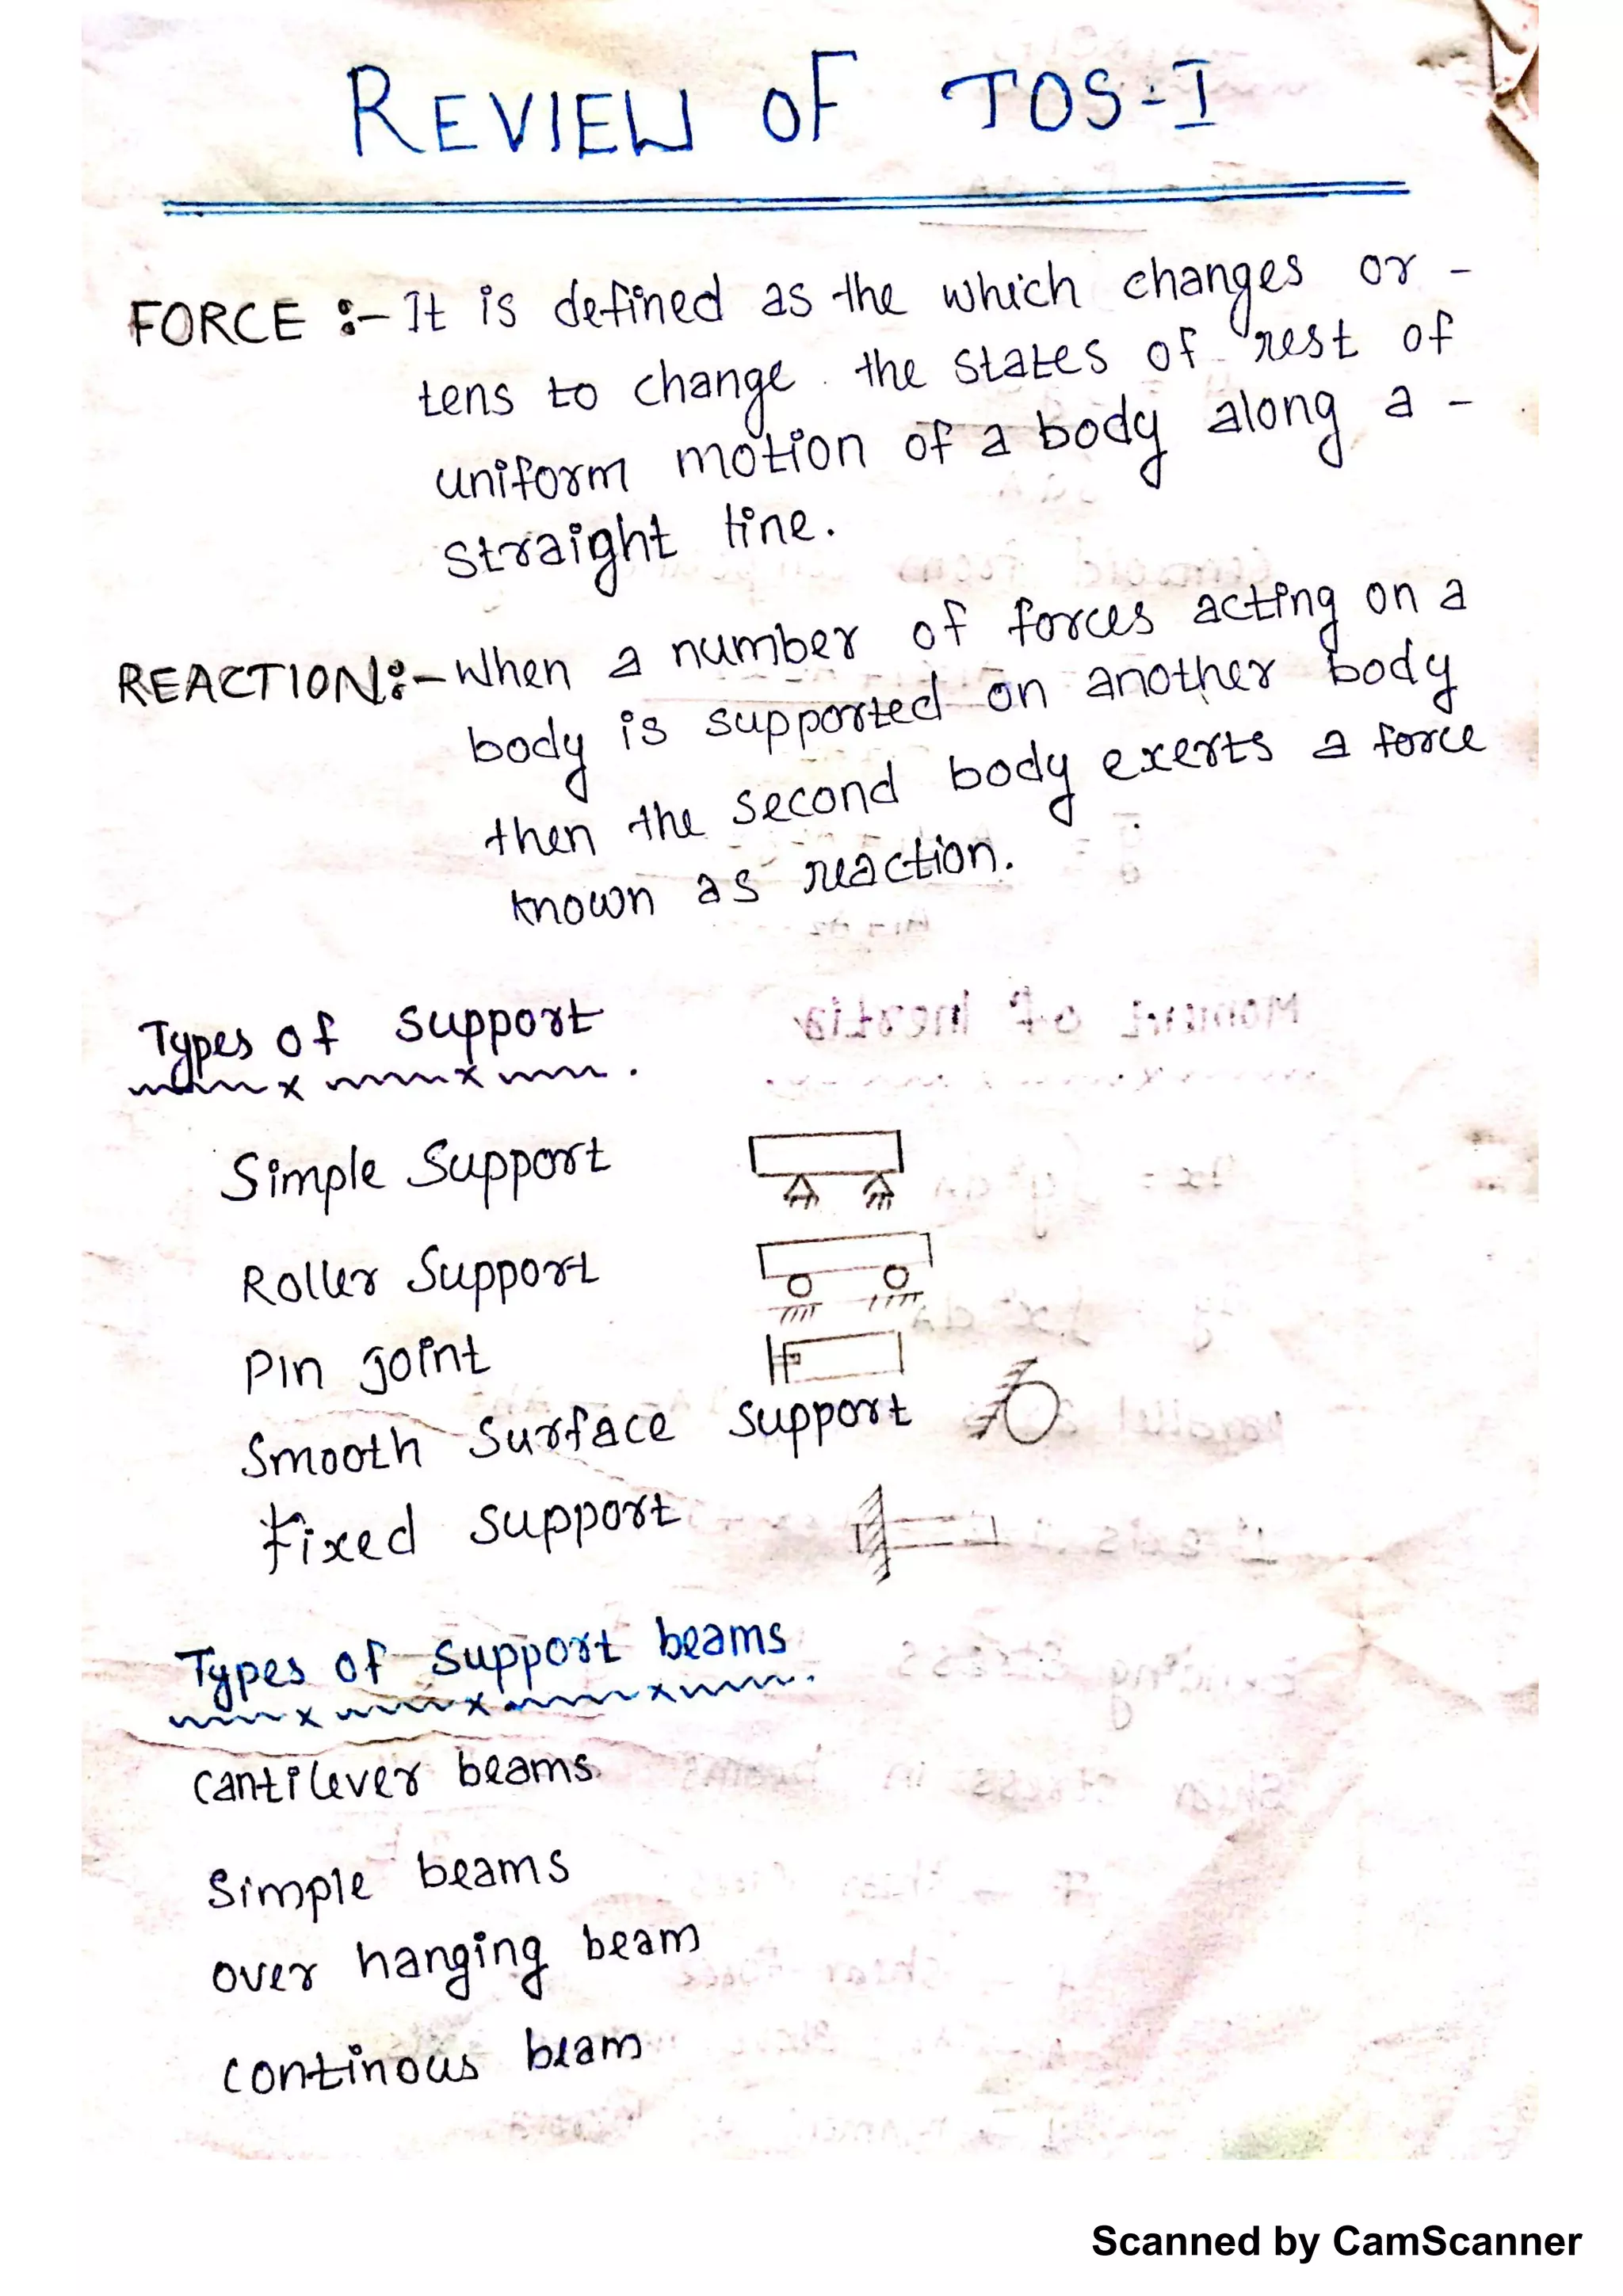 REVIEW OF TOS-I
FORCE :- It is defined as the which changes or -
tens to change the states of rest of
uniform motion of a body along a -
straight line.
REACTION:- When a number of forces acting on a
body is supported on another body
then the second body exerts a force
known as reaction.
Types of support
Simple Support
Roller Support
Pin joint
Smooth Surface support
Fixed support
Types of support beams
Cantilever beams.
Simple beams
over hanging beam
continous beam
Scanned by CamScanner